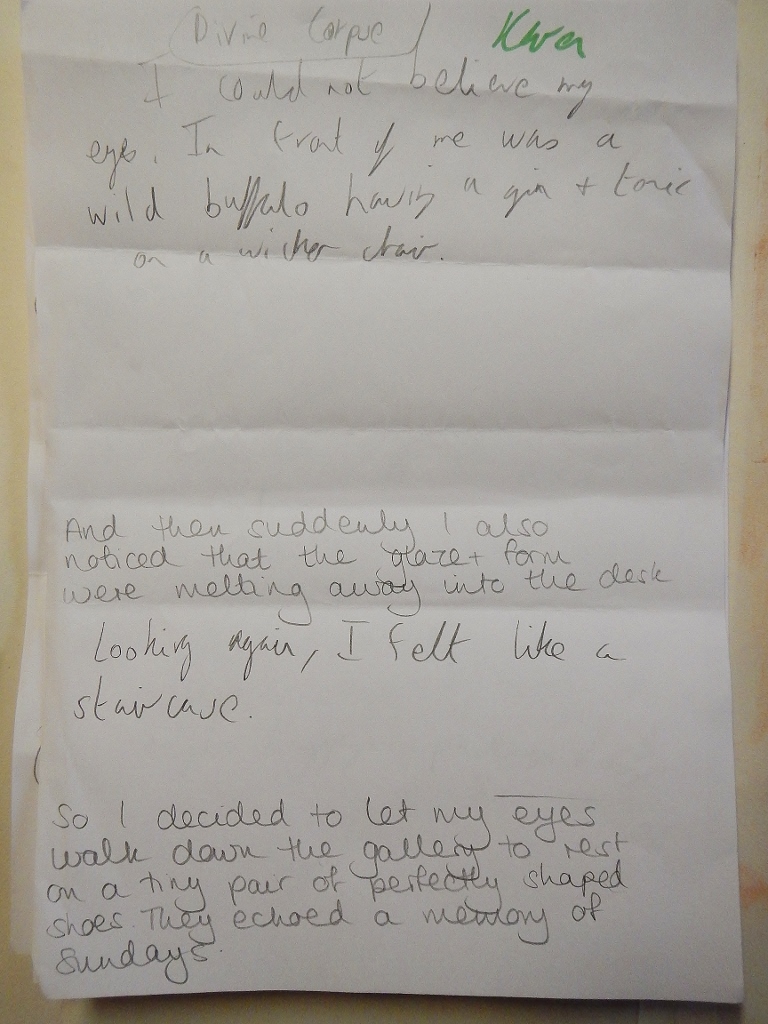 Divine Corpse
I could not believe my
eyes. In front of me was a
wild buffalo having a gin + tonic
on a wicker chair.
And then suddenly I also
noticed that the glaze + form
were melting away into the desk
Looking again, I felt like a
staircase.
So I decided to let my eyes
walk down the gallery to rest
on a tiny pair of perfectly shaped
shoes. They echoed a memory of
Sundays.